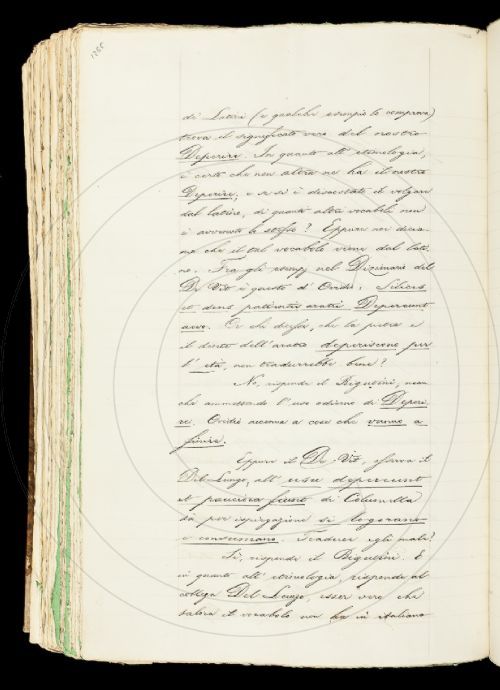 di Latini (e qualche esempio lo comprova)
trova il significato vero del nostro
Deperire. In quanto all' etimologia,
è certo che non altra ne ha il nostro
Deperire, e se si è discostato il volgare
dal latino, di quanti altri vocaboli non
è avvenuto lo stesso? Eppure noi dicia-
mo che il tal vocabolo viene dal lati-
no. Fra gli esempj nel Dizionario del
De Vit è questo d' Ovidio: Silices
et dens patientis aratri Depereunt
aevo. Or chi dicesse, che la pietra e
il dente dell' aratro deperiscono per
l' età, non tradurrebbe bene?
No, risponde il Rigutini, nean
che ammettendo l' uso odierno di Deperi-
re, Ovidio accenna a cose che vanno a
finire.
Eppure il De-Vit, osserva il
Del-Lungo, all' usu depereunt
et pauciora fiunt di Columella
dà per ispiegazione si logorano
e consumano. Traduce egli male?
Sì, risponde il Rigutini. E
in quanto all' etimologia, risponde al
collega Del-Lungo, esser vero che
talora il vocabolo non ha in italiano